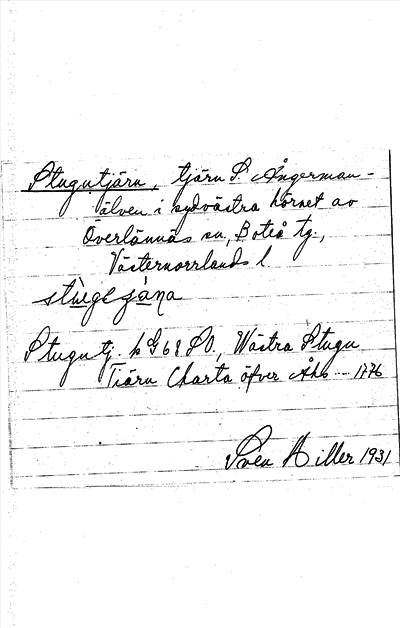 Stugutjärn, tjärn S. Ångerman-
älven i sydvästra hörnet av
Överlännäs sn, Boteå tg.,
Västernorrlands l.
Stugutj. k G 68 SO, Wästra Stugu
Tiärn Charta öfver Åhs -- 1776
Sven Hiller 1931